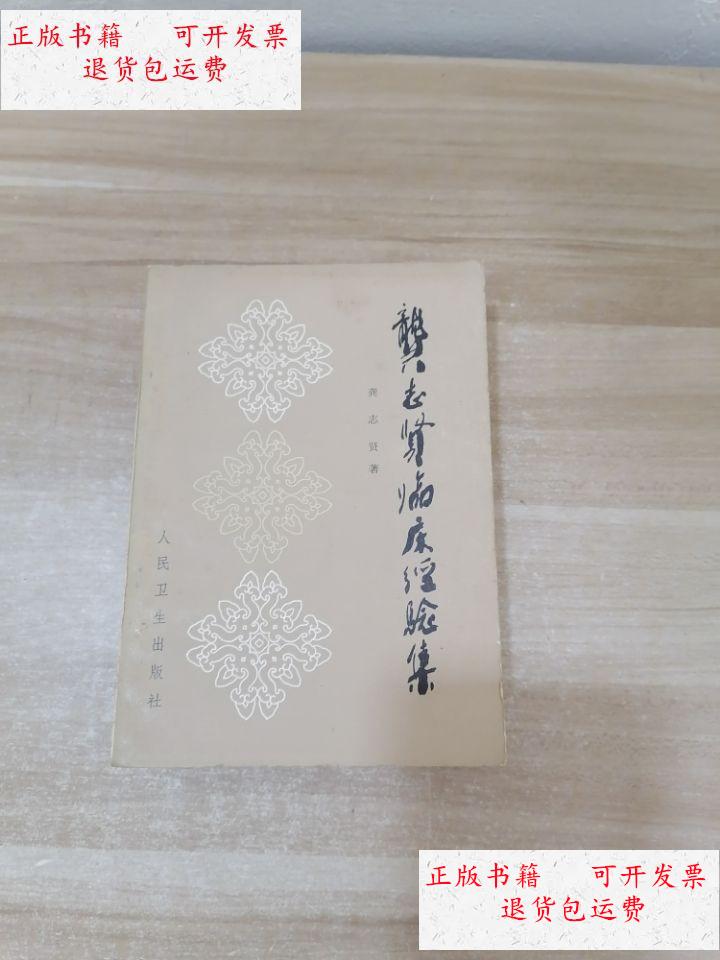 正版书籍 可开发票
退货包运费
龚志贤临床经验集
龚志贤著
人民卫生出版社
正版书籍 可开发票
退货包运费